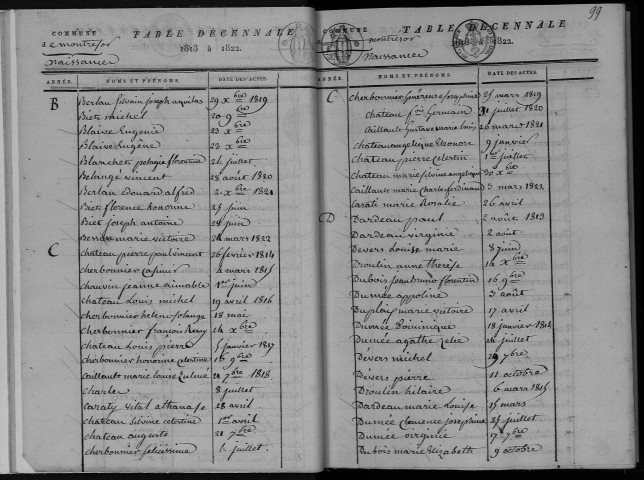 COMMUNE
de montresor
TABLE DÉCENNALE
1818 à 1822.
naissances
ANNÉE.
NOMS ET PRÉNOMS.
DATE DES ACTES.
B
Bertau Silvain Joseph aquilas 29 Xbre 1819
Biet michel 20 9bre
Blaive Eugenie 23 Xbre
Blaive Eugene 23 Xbre
Blanchet pelagie florentine 24 juillet
Belangé vincent 28 août 1820
Bertau Edouard alfred 2 Xbre 1821
Biet florence honorine 25 juin
Biet Joseph antoine 28 juin
marie victoire 24 mars 1822
C
Chateau pierre paul vincent 26 fevrier 1814
Cherbonnier Casimir 4 mars 1815
Chauvin jeanne aimable 1er juin
Chateau Louis michel 19 avril 1816
Cherbonnier helene Solange 18 mai
Cherbonnier françois Remy 24 Xbre
Chateau Louis pierre 5 janvier 1817
Cherbonnier honorine Celestine 16 9bre
Caillault marie louise Zulmé 21 7bre 1818
Charles 8 juillet
Caraty vital athanase 28 avril
Chateau Silvine Celestine 1er avril
Chateau auguste 21 7bre
Cherbonnier felicissime juillet
99
COMMUNE
montresor
TABLE DÉCENNALE
1818 à 1822.
naissances
ANNÉE.
NOMS ET PRÉNOMS.
DATE DES ACTES.
C
Cherbonnier Généreuse Seraphine 25 mars 1819
Chateau Germain 31 juillet 1820
Caillault Gustave marie louis 26 mars 1821
Chateau angelique Eleonore 9 janvier
Chateau pierre Celestin 1er juillet
Chateau marie silvine angelique 30 Xbre
Caillault marie Charles ferdinand 3 mars 1822
Carati marie Rosalie 26 avril
D
Dardeau paul 2 août 1813
Dardeau virginie 2 août
Devers Louise marie 8 juin
Droulin anne therese 14 Xbre
Dubois florentin 16 9bre
Dumée appoline 3 août
Duplaix marie victoire 17 avril
Dumée Dominique 18 janvier 1814
Dumée agathe Zelie 26 juillet
Dévers michel 29 7bre
Dévers pierre 11 octobre
Droulin hilaire 6 mars 1815
Dardeau marie Louise 15 mars
Dumée Clemence josephine 25 juillet
Dumée virginie 17 7bre
Dubois marie Elizabeth 9 octobre